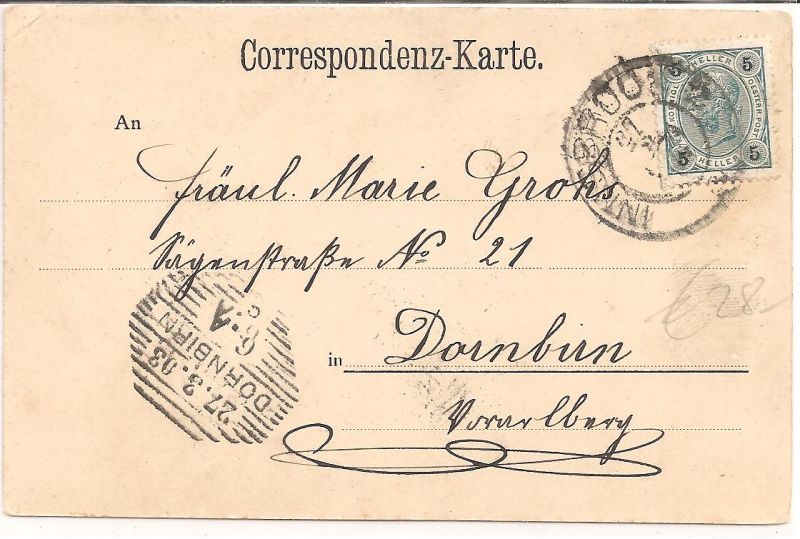 Correspondenz-Karte.
5 HELLER 5
OESTERR. POST
5 HELLER 5
INNSBRUCK
An
Fräul. Marie Grohs
Sägenstraße No 21
in Dornbirn
Vorarlberg
27.3.03
DORNBIRN
6-A
C
28-